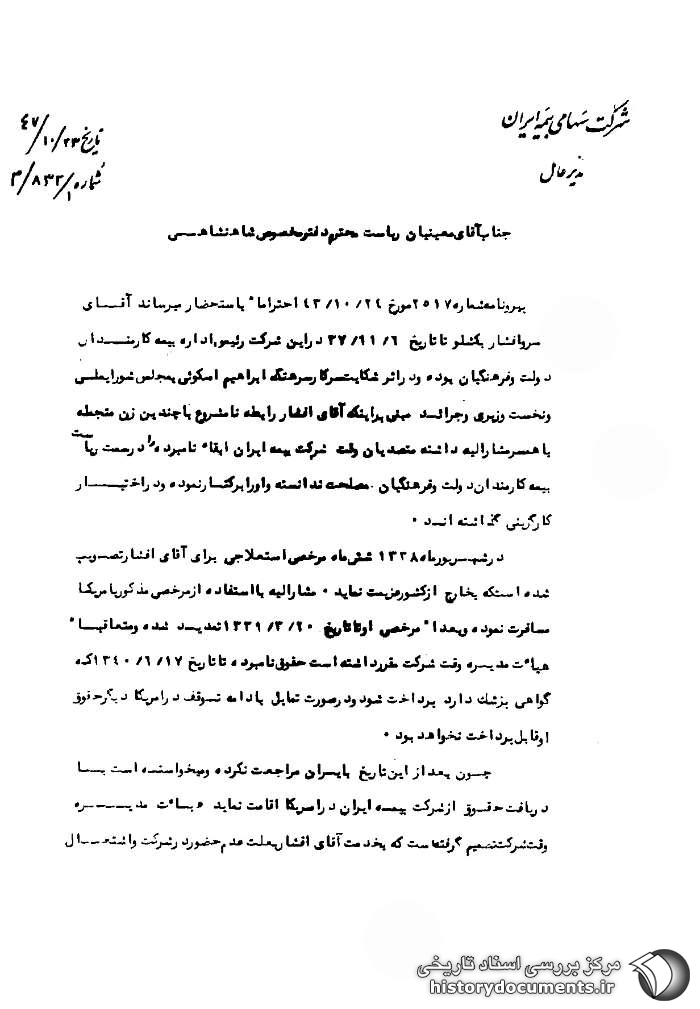 شرکت سهامی بیمه ایران
مدیر عامل
تاریخ ۴۷/۱۰/۲۳
شماره ۳/۸۳۲/۱
جناب آقای معینیان ریاست محترم دفتر مخصوص شاهنشاهی
پیرو نامه شماره ۲۵۱۷ مورخ ۴۳/۱۰/۲۴ احتراما" باستحضار میرساند آقای
سرو افشار بکشلو تا تاریخ ۳۷/۱۱/۶ در این شرکت رئیس اداره بیمه کارمندان
دولت و فرهنگیان بوده و در اثر شکایت سرکار سرهنگ ابراهیم اسکوئی بمجلس شورایملی
و نخست وزیری و جرائد مبنی بر اینکه آقای افشار رابطه نامشروع با چندین زن منجمله
با همسر مشارالیه داشته متصدیان وقت شرکت بیمه ایران ابقاء نامبرده را در سمت ریاست
بیمه کارمندان دولت و فرهنگیان مصلحت ندانسته و او را برکنار نموده و در اختیار
کارگزینی گذاشته اند.
در شهریورماه ۱۳۳۸ شش ماه مرخصی استعلاجی برای آقای افشار تصویب
شده است که بخارج از کشور عزیمت نماید. مشارالیه با استفاده از مرخصی مذکور بامریکا
مسافرت نموده و بعدا" مرخصی او تا تاریخ ۱۳۳۹/۳/۲۰ تمدید شده و متعاقبا"
هیات مدیره وقت شرکت مقرر داشته است حقوق نامبرده تا تاریخ ۱۳۴۰/۶/۱۷ که
گواهی پزشک دارد پرداخت شود و در صورت تمایل بادامه توقف در امریکا دیگر حقوق
او قابل پرداخت نخواهد بود.
چون بعد از این تاریخ بایران مراجعت نکرده و میخواسته است با
دریافت حقوق از شرکت بیمه ایران در امریکا اقامت نماید هیات مدیره
وقت شرکت تصمیم گرفته است که بخدمت آقای افشار بعلت عدم حضور در شرکت و اشتغال
مرکز بررسی اسناد تاریخی
historydocuments.ir